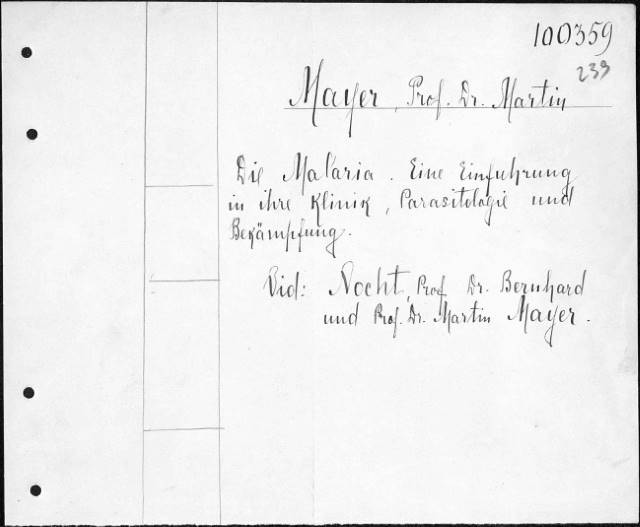 100359
239
Mayer, Prof. Dr. Martin
Die Malaria. Eine Einfuhrung
in ihre Klinik, Parasitologie und
Bekämpfung.
Vid: Nocht, Prof Dr. Bernhard
und Prof. Dr. Martin Mayer.